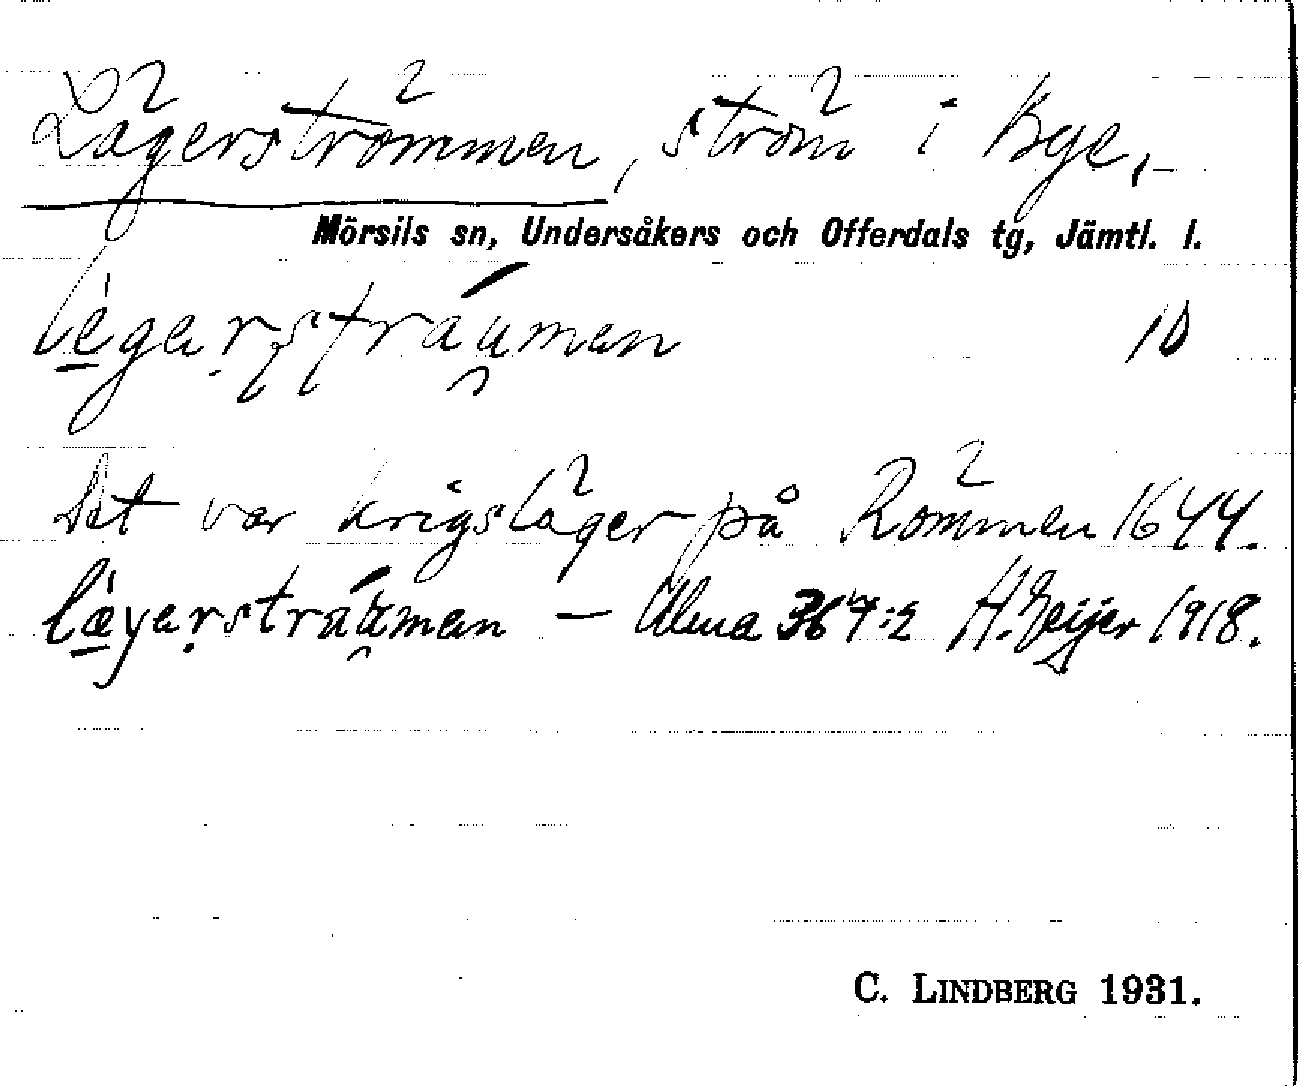 Lägerströmmen, ström i Bye,
Mörsils sn, Undersåkers och Offerdals tg, Jämtl. l.
10
Det var krigsläger på Römmen 1644.
— Alma 367:2 H. Geijer 1918.
C. LINDBERG 1931.